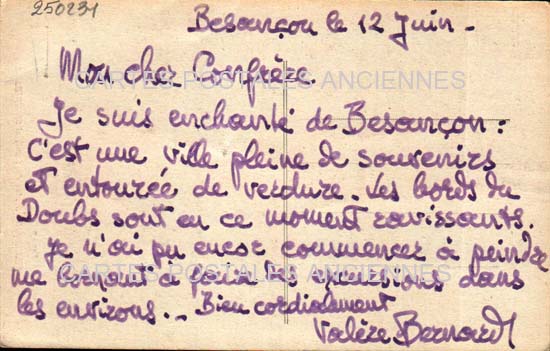 250231
Besançon le 12 Juin -
Mon cher Confrère.
CARTES POSTALES ANCIENNES
Je suis enchanté de Besançon :
C'est une ville pleine de souvenirs
et entourée de verdure. Les bords du
Doubs sont en ce moment ravissants.
Je n'ai pu encor commencer à peindre
me bornant à faire des excursions dans
CARTES POSTALES ANCIENNES
les environs. - Bien cordialement
Valère Bernard